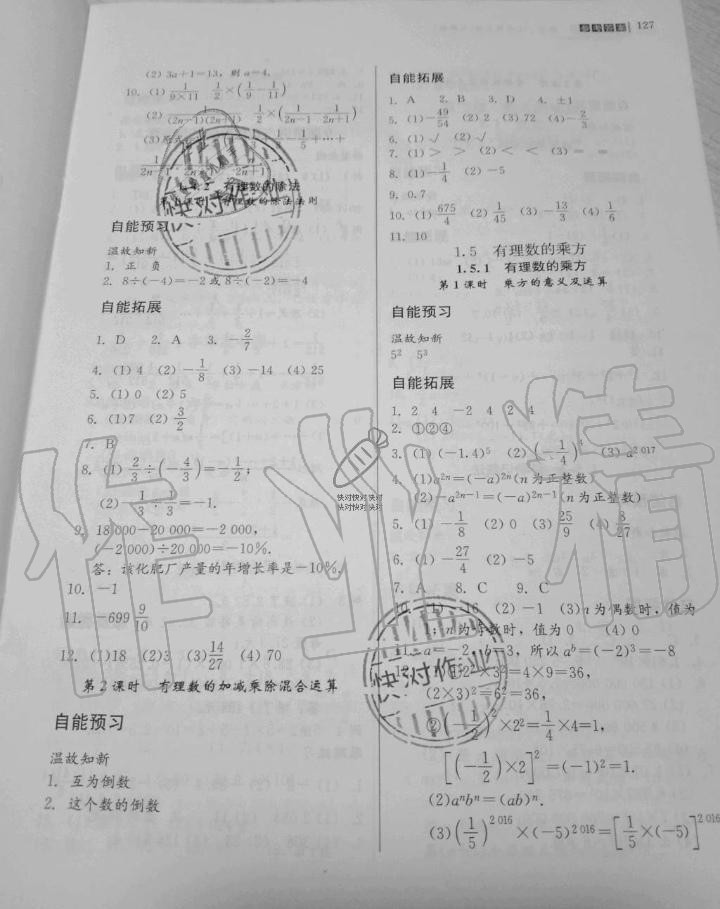 参考答案 127
(2) 3a+1=13, 则 a=4.
10. (1) 1/(9×11) 1/2×(1/9-1/11)
(2) 1/((2n-1)(2n+1)) 1/2×(1/(2n-1)-1/(2n+1))
有理数的除法
有理数的除法法则
自能预习
温故知新
1. 正 负
2. 8÷(-4)=-2 或 8÷(-2)=-4
自能拓展
1. D 2. A 3. -2/7
4. (1) 4 (2) -1/8 (3) -14 (4) 25
5. (1) 0 (2) 5
6. (1)7 (2) 3/2
7. B
8. (1) 2/3÷(-4/3)=-1/2;
(2) -1/3÷1/3=-1.
9. 18 000-20 000=-2 000,
(-2 000)÷20 000=-10%.
答: 该化肥厂产量的年增长率是-10%.
10. -1
11. -699 9/10
12. (1)18 (2)3 (3) 14/27 (4) 70
第 2 课时 有理数的加减乘除混合运算
自能预习
温故知新
1. 互为倒数
2. 这个数的倒数
自能拓展
1. A 2. B 3. D 4. ±1
5. (1) -49/54 (2) 2 (3) 72 (4) -2/3
6. (1) √ (2) √
7. (1) > > (2) < < (3) = =
8. (1) -1/4 (2) -5
9. 0.7
10. (1) 675/4 (2) 1/45 (3) -13/3 (4) 1/6
11. 10
1.5 有理数的乘方
1.5.1 有理数的乘方
第 1 课时 乘方的意义及运算
自能预习
温故知新
5² 5³
自能拓展
1. 2 4 -2 4 2 4
2. ①②④
3. (1) (-1.4)⁵ (2) (-1/4)⁴ (3) a²⁰¹⁷
4. (1)a²ⁿ=(-a)²ⁿ(n 为正整数)
(2)-a²ⁿ⁻¹=(-a)²ⁿ⁻¹(n 为正整数)
5. (1) -1/8 (2) 0 (3) 25/9 (4) 8/27
6. (1) -27/4 (2) -5
7. A 8. C 9. C
10. (1) -16 (2) -1 (3)n 为偶数时, 值为
1; n 为奇数时, 值为 0 (4) 0
11. a=-2, b=3, 所以 aᵇ=(-2)³=-8
2²×3²=4×9=36,
(2×3)²=6²=36,
②(-1/2)²×2²=1/4×4=1,
[(-1/2)×2]²=(-1)²=1.
(2)aⁿbⁿ=(ab)ⁿ.
(3)(1/5)²⁰¹⁶×(-5)²⁰¹⁶=[1/5×(-5)]²⁰¹⁶
作业精
快对作业
快对作业
快对快对快对
快对快对快对